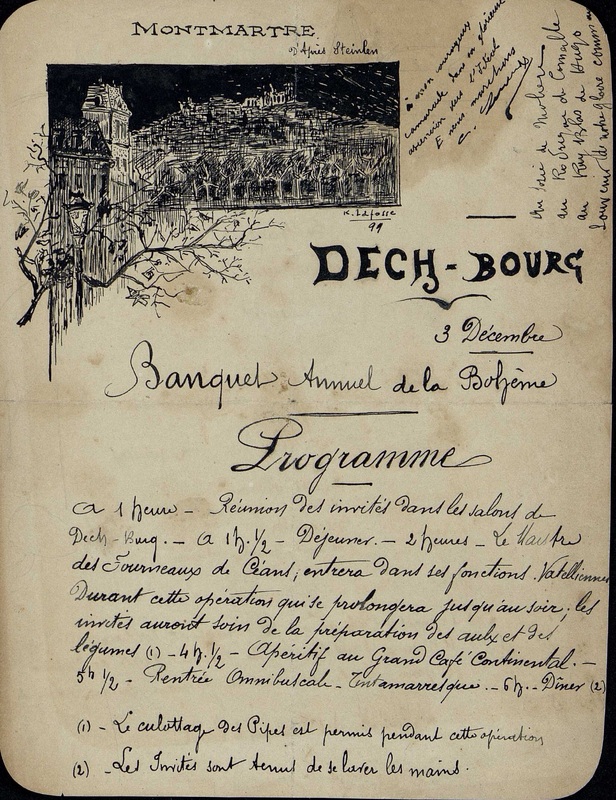 MONTMARTRE
D'Après Steinlen
à mon
camarade dans
ascension vers l'Idéal
E nous marchons
Au de Molière
au Rodrigue de Corneille
au Ruy Blas de Hugo
Souvenir de notre gloire comm
K. Lafosse
99
DECH-BOURG
3 Décembre
Banquet Annuel de la Bohême
Programme
a 1 heure - Réunion des invités dans les salons de
Dech-Burg. - a 1h.1/2 - Déjeuner. - 2 heures - Le Maître
des Fourneaux de Céans, entrera dans ses fonctions. Vatelliennes
Durant cette opération qui se prolongera jusqu'au soir; les
invités auront soin de la préparation des aulx et des
légumes (1) - 4h.1/2 - Apéritif au Grand Café Continental. -
5h 1/2 - Rentrée Omnibuscale - Tintamarresque. - 6h. - Dîner (2)
(1) - Le culottage des Pipes est permis pendant cette opération
(2) - Les Invités sont tenus de se laver les mains.